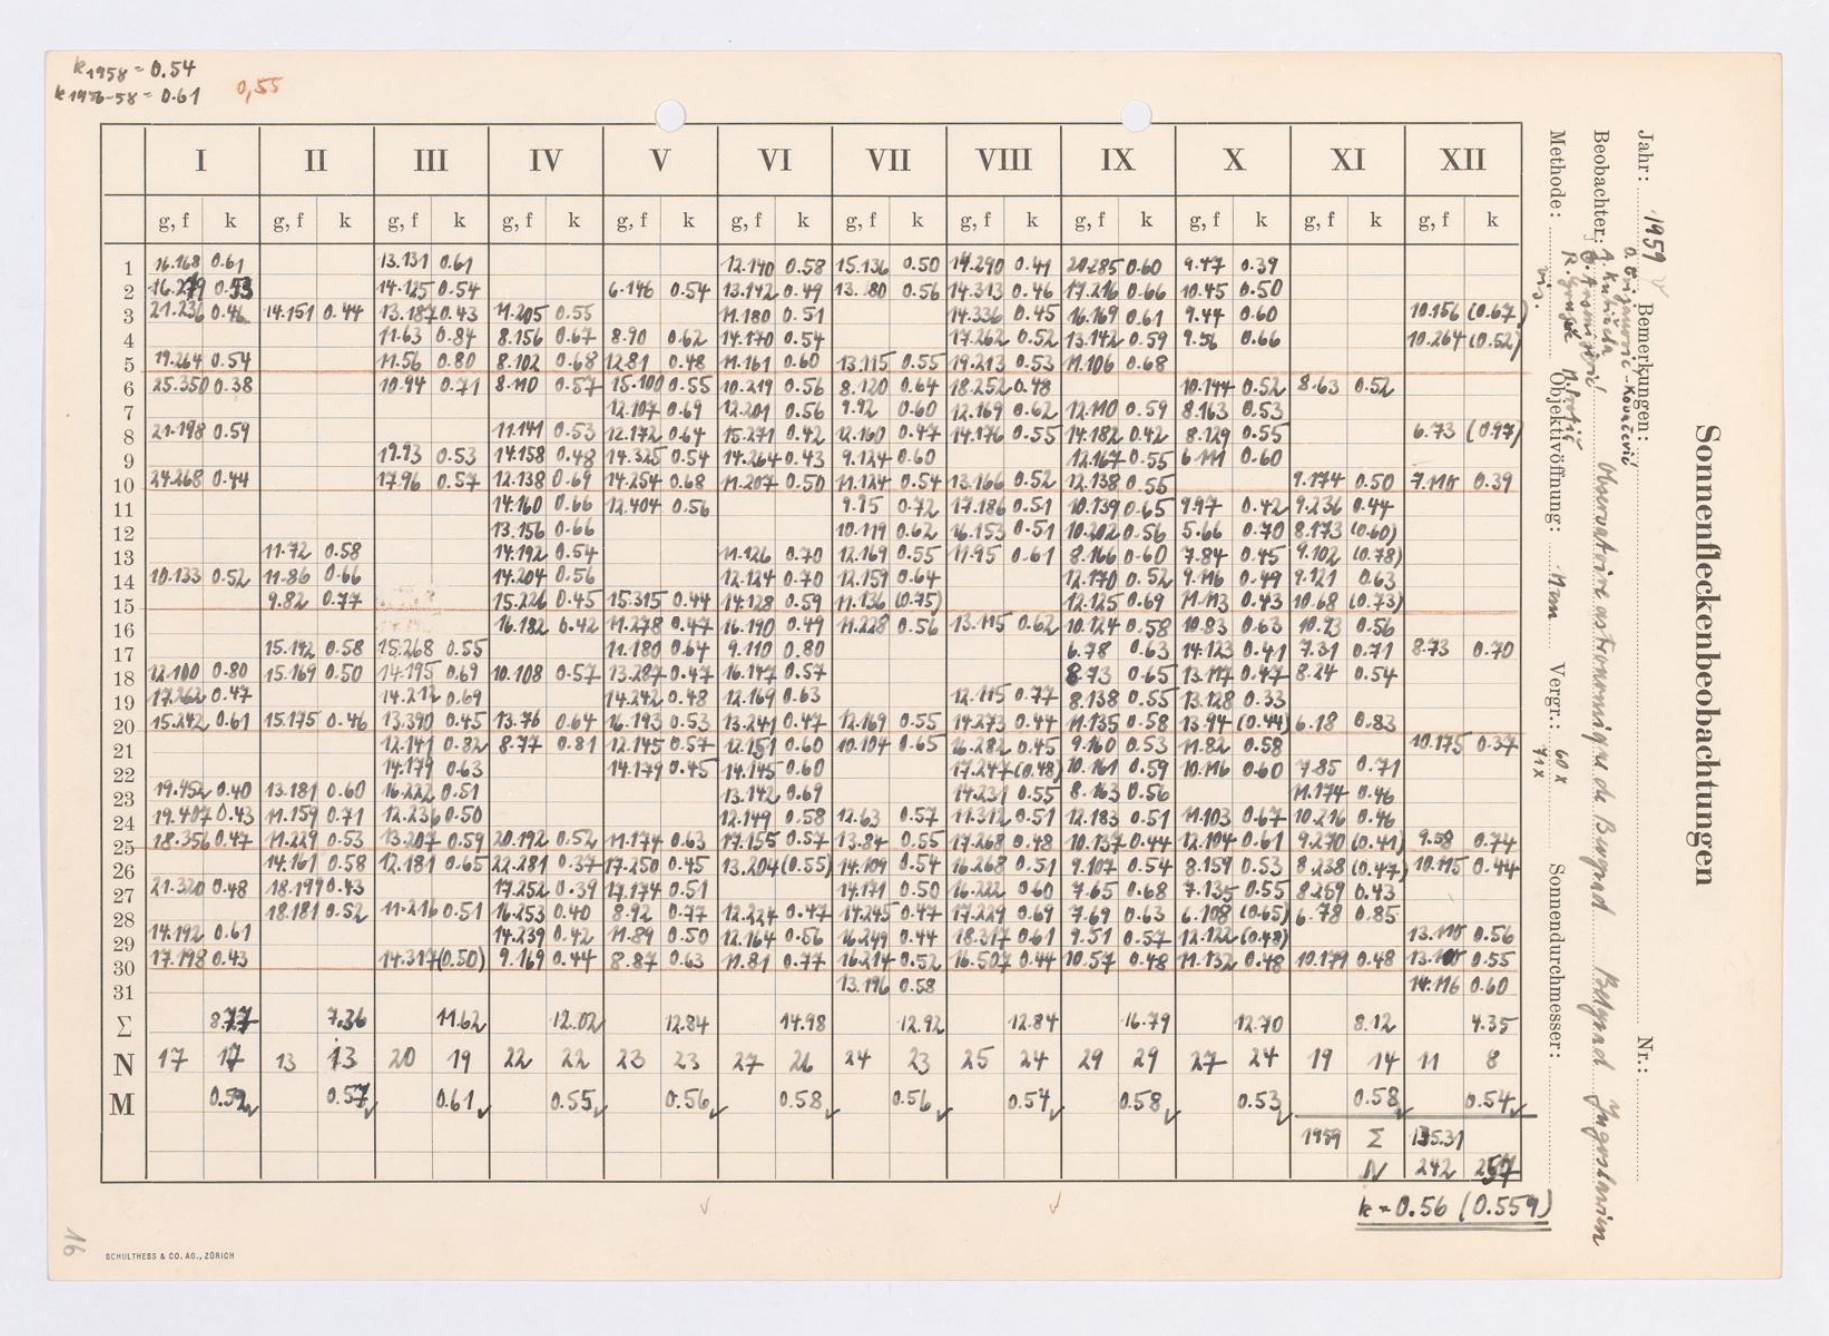 k1958 = 0.54
k1956-58 = 0.61 0,55
I II III IV V VI VII VIII IX X XI XII
g, f k g, f k g, f k g, f k g, f k g, f k g, f k g, f k g, f k g, f k g, f k g, f k
1 16.168 0.61 13.131 0.61 12.140 0.58 15.136 0.50 14.290 0.41 20.285 0.60 9.47 0.39
2 14.125 0.54 6.146 0.54 13.142 0.49 13.80 0.56 14.313 0.46 17.216 0.66 10.45 0.50
3 21.236 0.46 14.151 0.44 13.187 0.43 11.205 0.55 11.180 0.51 14.336 0.45 16.169 0.61 9.44 0.60 10.156 (0.67)
4 11.63 0.84 8.156 0.67 8.90 0.62 14.170 0.54 17.262 0.52 13.142 0.59 9.56 0.66 10.264 (0.52)
5 19.264 0.54 11.56 0.80 8.102 0.68 12.81 0.48 11.161 0.60 13.115 0.55 19.213 0.53 11.106 0.68
6 25.350 0.38 10.94 0.71 8.110 0.57 15.100 0.55 10.219 0.56 8.120 0.64 18.252 0.48 10.144 0.52 8.63 0.52
7 12.107 0.69 12.201 0.56 9.92 0.60 12.169 0.62 12.110 0.59 8.163 0.53
8 21.198 0.59 11.141 0.53 12.172 0.64 15.271 0.42 12.160 0.47 14.176 0.55 14.182 0.42 8.129 0.55 6.73 (0.97)
9 0.53 14.158 0.48 14.325 0.54 14.264 0.43 9.124 0.60 12.167 0.55 6.111 0.60
10 24.268 0.44 17.96 0.57 12.138 0.69 14.254 0.68 11.207 0.50 11.124 0.54 13.166 0.52 12.138 0.55 9.174 0.50 7.118 0.39
11 14.160 0.66 12.404 0.56 9.75 0.72 17.186 0.51 10.139 0.65 9.97 0.42 9.236 0.44
12 13.156 0.66 10.119 0.62 16.153 0.51 10.202 0.56 5.66 0.70 8.173 (0.60)
13 11.72 0.58 14.192 0.54 11.126 0.70 12.169 0.55 11.95 0.61 8.166 0.60 7.84 0.45 9.102 (0.78)
14 10.133 0.52 11.86 0.66 14.204 0.56 12.124 0.70 12.159 0.64 12.170 0.52 9.116 0.49 9.121 0.63
15 9.82 0.77 15.226 0.45 15.315 0.44 14.128 0.59 11.136 (0.75) 12.125 0.69 11.113 0.43 10.68 (0.73)
16 16.182 0.42 11.278 0.47 16.190 0.49 11.228 0.56 13.115 0.62 10.124 0.58 10.83 0.63 10.93 0.56
17 15.142 0.58 15.268 0.55 11.180 0.64 9.110 0.80 6.78 0.63 14.123 0.41 7.31 0.71 8.73 0.70
18 12.100 0.80 15.169 0.50 14.195 0.69 10.108 0.57 13.287 0.47 16.147 0.57 8.73 0.65 13.117 0.47 8.24 0.54
19 17.262 0.47 14.212 0.69 14.242 0.48 12.169 0.63 12.115 0.77 8.138 0.55 13.128 0.33
20 15.242 0.61 15.175 0.46 13.390 0.45 13.76 0.64 16.193 0.53 13.241 0.47 12.169 0.55 14.273 0.44 11.135 0.58 13.94 (0.44) 6.18 0.83
21 12.141 0.82 8.77 0.81 12.145 0.57 12.151 0.60 10.104 0.65 16.282 0.45 9.160 0.53 11.82 0.58 10.175 0.37
22 14.179 0.63 14.179 0.45 14.145 0.60 17.247 (0.48) 10.161 0.59 10.116 0.60 7.85 0.71
23 19.452 0.40 13.181 0.60 16.222 0.51 13.142 0.69 14.231 0.55 8.163 0.56 11.174 0.46
24 19.407 0.43 11.159 0.71 12.236 0.50 12.149 0.58 12.63 0.57 11.312 0.51 12.183 0.51 11.103 0.67 10.216 0.46
25 18.356 0.47 11.229 0.53 13.207 0.59 20.192 0.52 11.174 0.63 17.155 0.57 13.84 0.55 17.268 0.48 10.137 0.44 12.104 0.61 9.270 (0.41) 9.58 0.74
26 14.161 0.58 12.181 0.65 22.281 0.37 17.250 0.45 13.204 (0.55) 14.109 0.54 16.268 0.51 9.107 0.54 8.159 0.53 8.238 (0.47) 10.115 0.44
27 21.320 0.48 18.199 0.43 17.252 0.39 17.174 0.51 14.171 0.50 16.222 0.60 7.65 0.68 7.135 0.55 8.269 0.43
28 18.181 0.52 11.216 0.51 16.253 0.40 8.92 0.77 12.224 0.47 14.245 0.47 17.229 0.69 7.69 0.63 6.108 (0.65) 6.78 0.85
29 14.192 0.61 14.239 0.42 11.89 0.50 12.164 0.56 16.249 0.44 18.317 0.61 9.51 0.57 12.122 (0.48) 13.118 0.56
30 17.198 0.43 14.317 (0.50) 9.169 0.44 8.87 0.63 11.81 0.77 16.214 0.52 16.507 0.44 10.57 0.48 11.132 0.48 10.179 0.48 0.55
31 13.196 0.58 14.116 0.60
Σ 8.77 7.36 11.62 12.02 12.84 14.98 12.92 12.84 16.79 12.70 8.12 4.35
N 17 17 13 13 20 19 22 22 23 23 27 26 24 23 25 24 29 29 27 24 19 14 11 8
M 0.52 0.57 0.61 0.55 0.56 0.58 0.56 0.54 0.58 0.53 0.58 0.54
1959 Σ 135.31
N 242 257
k = 0.56 (0.559)
Sonnenfleckenbeobachtungen
Jahr: 1959 Bemerkungen: Nr.:
Beobachter: Observatoire astronomique de Beograd Belgrad Jugoslavien
Methode: vis. Objektivöffnung: Vergr.: 60 x Sonnendurchmesser:
41 x
16
SCHULTHESS & CO. AG., ZÜRICH